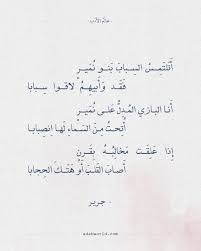 عالم الأدب
أَتَلتَمِسُ السِبابَ بَنو نُمَيرٍ
فَقَد وَأَبيهِمُ لاقوا سِبابا
أَنا البازي المُدِلُّ عَلى نُمَيرٍ
أُتِحتُ مِنَ السَماءِ لَها اِنصِبابا
إِذا عَلِقَت مَخالِبُهُ بِقَرنٍ
أَصابَ القَلبَ أَو هَتَكَ الحِجابا
- جرير -
adabworld.com